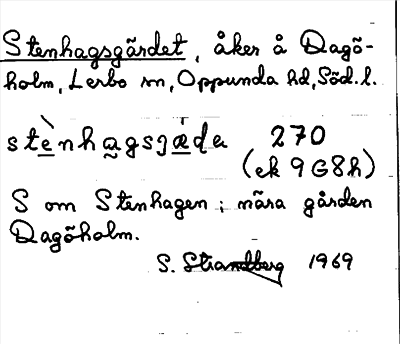 Stenhagsgärdet, åker å Dagö-
holm, Lerbo sn, Oppunda hd, Söd. l.
stènhagsjæ̀da 270
(ek 9G8h)
S om Stenhagen; nära gården
Dagöholm.
S. Strandberg 1969